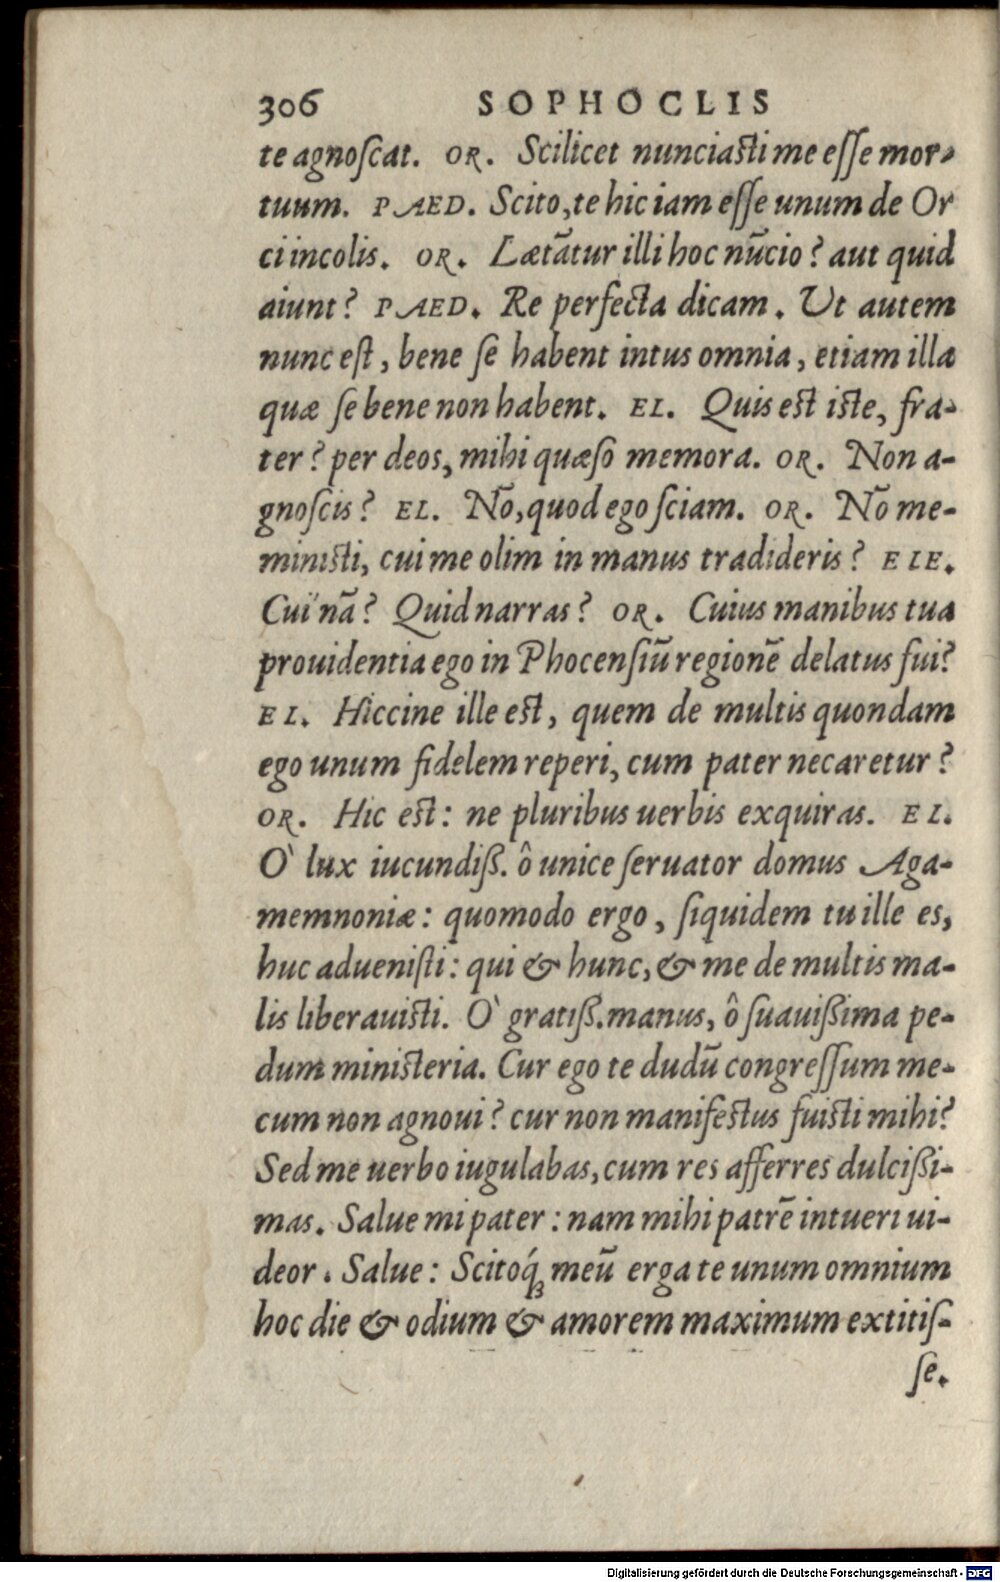 306 SOPHOCLIS
te agnoſcat. OR. Scilicet nunciaſti me eſſe mor-
tuum. PAED. Scito, te hic iam eſſe unum de Or
ci incolis. OR. Lætãtur illi hoc nũcio? aut quid
aiunt? PAED. Re perfecta dicam. Ut autem
nunc eſt, bene ſe habent intus omnia, etiam illa
quæ ſe bene non habent. EL. Quis eſt iſte, fra-
ter? per deos, mihi quæſo memora. OR. Non a-
gnoſcis? EL. Nõ, quod ego ſciam. OR. Nõ me-
miniſti, cui me olim in manus tradideris? ELE.
Cuï nã? Quid narras? OR. Cuius manibus tua
prouidentia ego in Phocenſiũ regionẽ delatus fui?
EL. Hiccine ille eſt, quem de multis quondam
ego unum fidelem reperi, cum pater necaretur?
OR. Hic eſt: ne pluribus uerbis exquiras. EL.
Ò lux iucundiß. ô unice ſeruator domus Aga-
memnoniæ: quomodo ergo, ſiquidem tu ille es,
huc adueniſti: qui & hunc, & me de multis ma-
lis liberauiſti. Ò gratiß. manus, ô ſuauißima pe-
dum miniſteria. Cur ego te dudũ congreſſum me-
cum non agnoui? cur non manifeſtus fuiſti mihi?
Sed me uerbo iugulabas, cum res afferres dulcißi-
mas. Salue mi pater: nam mihi patrẽ intueri ui-
deor. Salue: Scitoq́ꝫ meũ erga te unum omnium
hoc die & odium & amorem maximum extitiſ-
ſe.
Digitalisierung gefördert durch die Deutsche Forschungsgemeinschaft - DFG